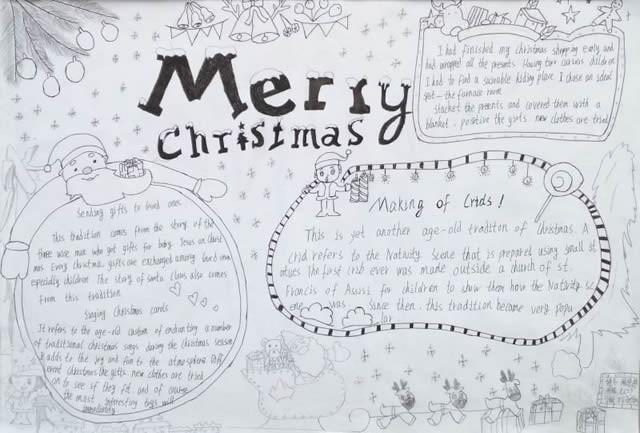 Merry
Christmas
I had finished my christmas shopping early and
had wrapped all the presents. Having two curious children
I had to find a suitable hiding place. I chose an ideal
spot — the furnace room
Stacket the presents and covered them with a
blanket. positive the girls new clothes are tried
Sending gifts to loved ones
This tradition comes from the story of the
three wise men who got gifts for baby Jesus on Christ
mas. Every christmas, gifts are exchanged among loved ones
especially children. The story of santa claus also comes
From this tradition.
Singing Christmas cards
It refers to the age-old custom of enchanting a number
of traditional christmas songs during the Christmas season
It adds to the joy and fun to the atmosphere. Diff
erent Christmas the gifts new clothes are tried
on to see if they fit and of course
the most interesting toys will
immediately
Making of Crids!
This is yet another age-old tradition of Christmas. A
crid refers to the Nativity Scene that is prepared using small st
atues. The first crib ever was made outside a church of st.
Francis of Assisi for children to show them how the Nativity sc
ene was. Since then, this tradition became very popu
lar